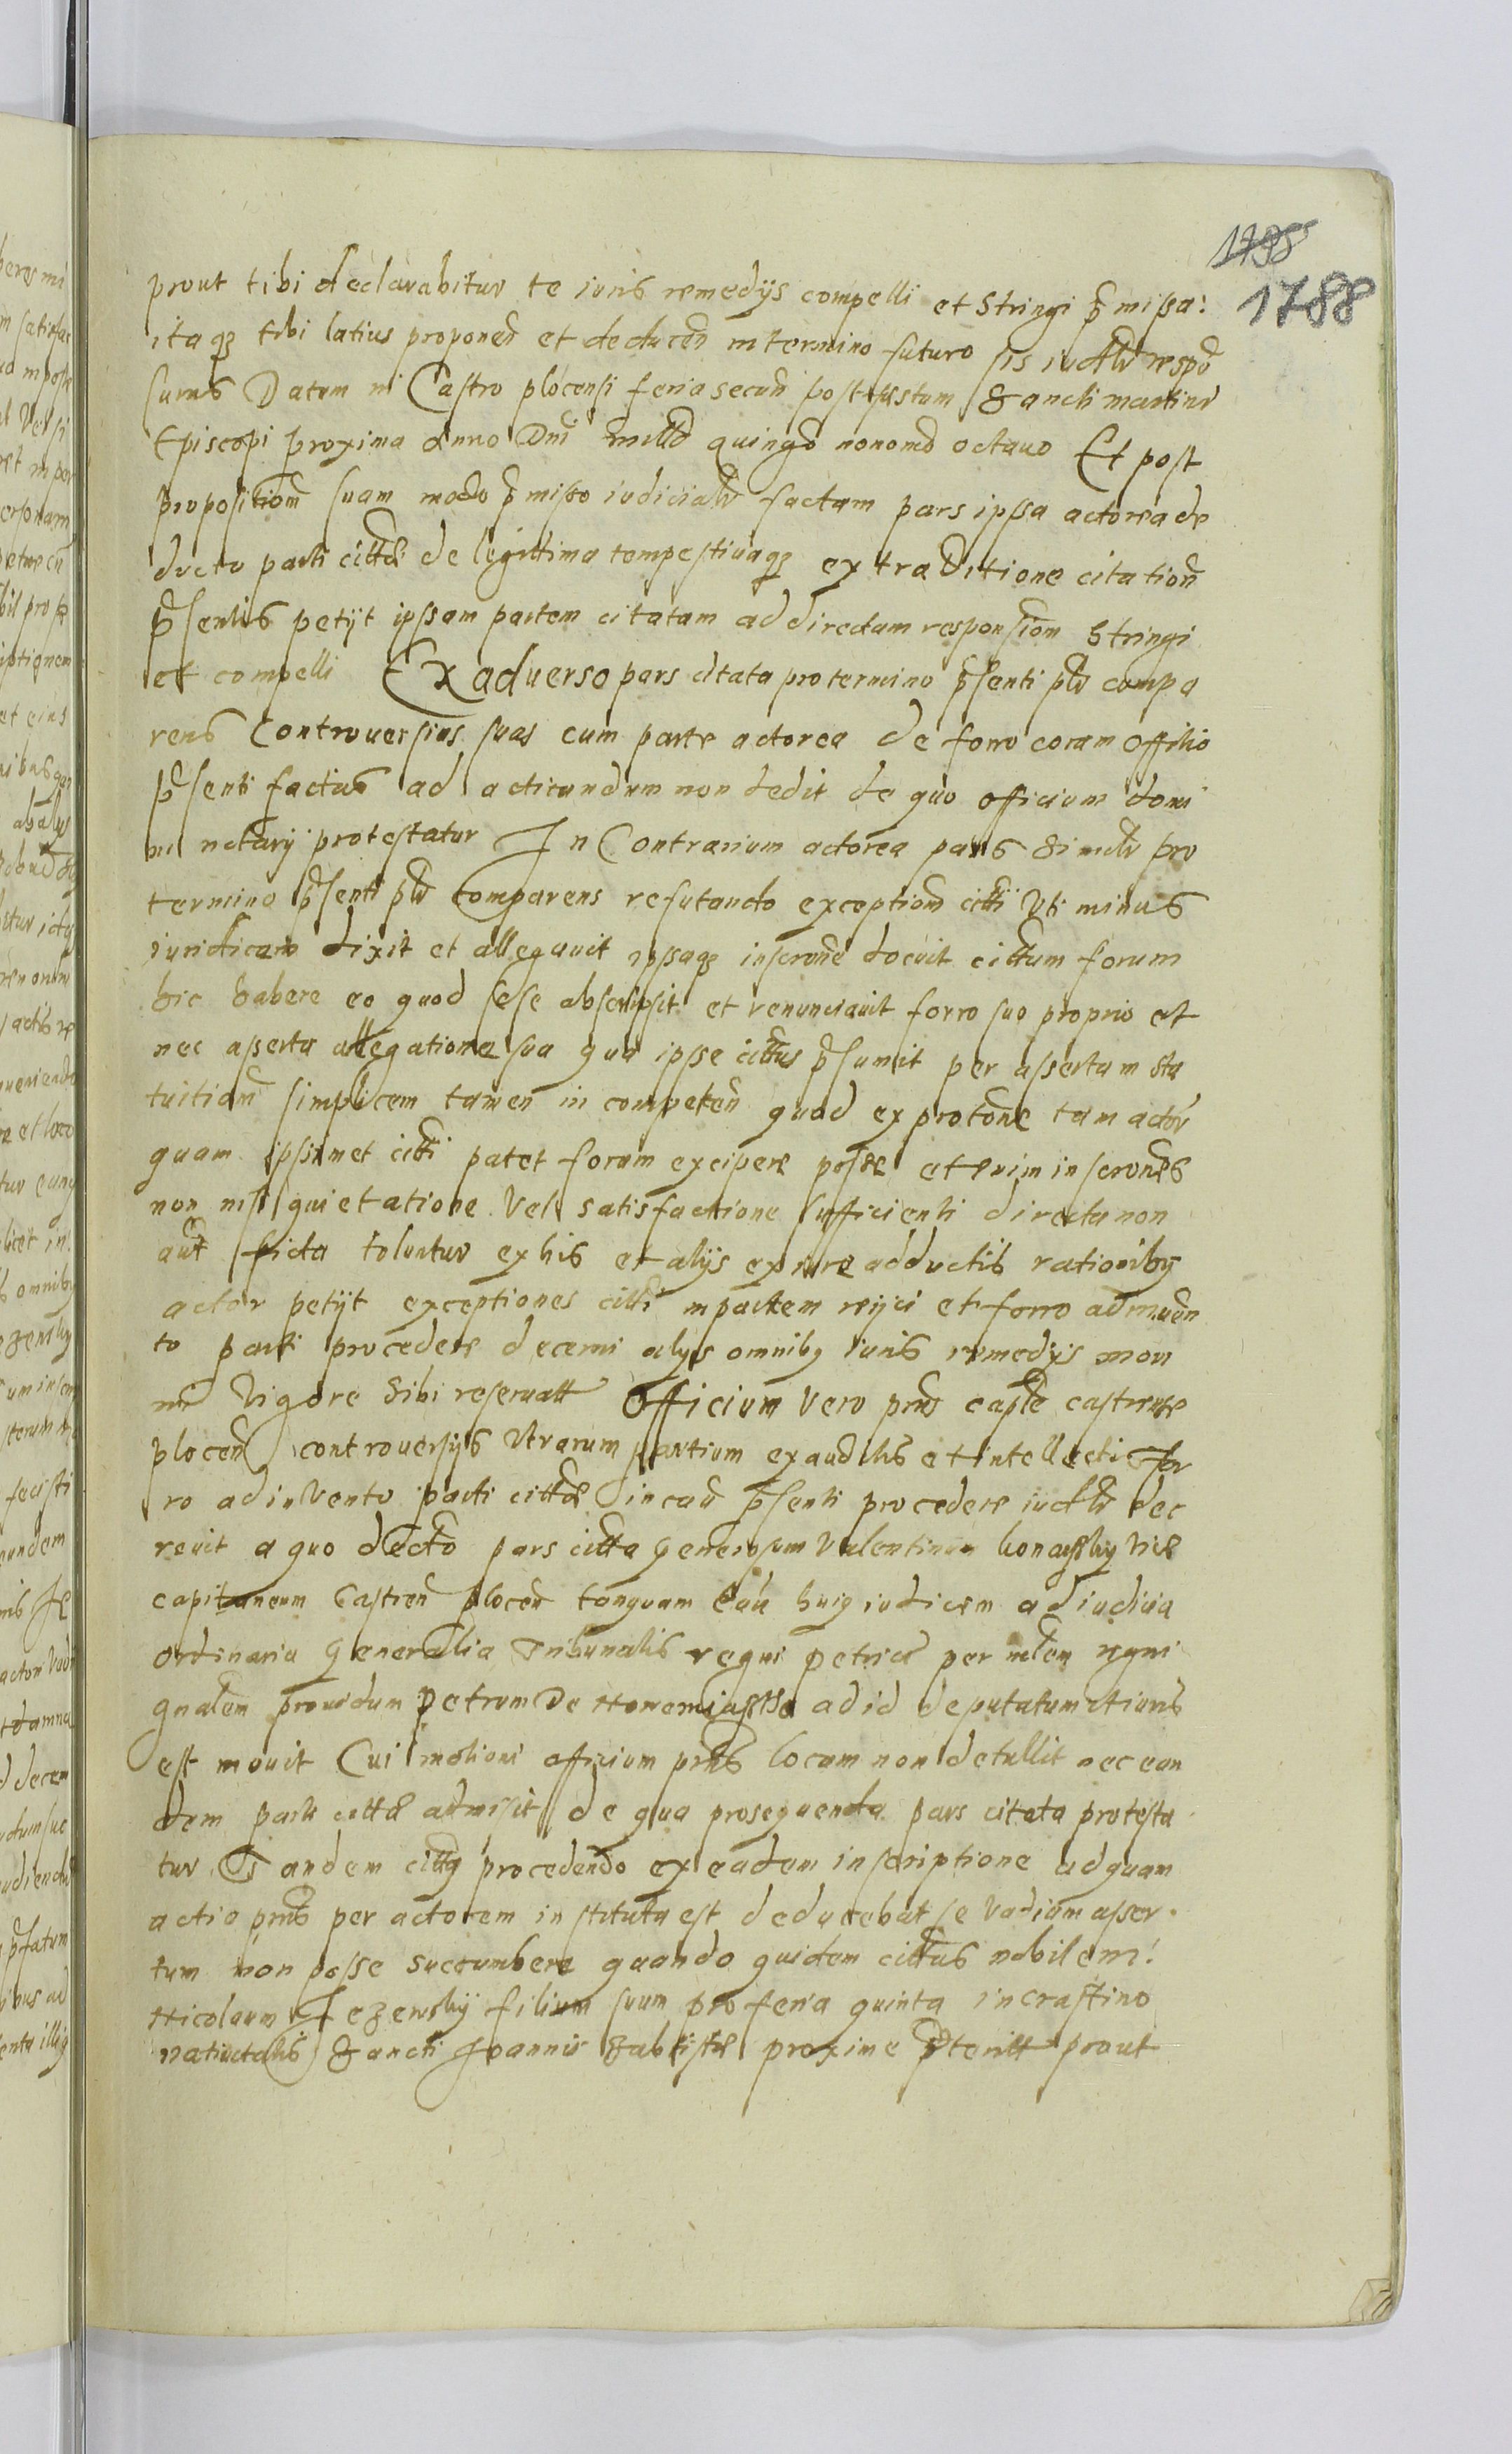 1798
1788
prout tibi declarabitur te iuris remedijs compelli et stringi p̄missa:
itaq₃ tibi latius proponen̄ et deducen̄ in termino futuro sis iudlr̄ respō
surus Datum in Castro plocensi feria secun̄ post festum Sancti martini
Episcopi proxima Anno Dni mill̄o quinḡo nonom̄o octauo Et post
propositiom̄ suam modo p̄misso iudicialr̄ factam pars ipsa actorea de
ducto parti cittæ de legittima tempestiuaq₃ extraditione citation̄
p̄sentis petijt ipsam partem citatam ad directam responsiom̄ stringi
et compelli Ex aduerso pars citata pro termino p̄senti plr̄ compa
rens Controuersias suas cum parte actorea de forro coram Offitio
p̄senti factas ad acticandum non dedit de quo officium domi
ni notarij protestatur In Contrarium actorea pars Simlr̄ pro
termino p̄senti plr̄ Comparens refutando exceptiom̄ citti Vti minus
iuridicam dixit et allegauit ipsaq₃ inscrone docuit cittum forum
hic habere eo quod sese abscripsit et renunciauit forro suo proprio et
nec asserta allegatione sua qua ipse cittus p̄sumit per assertam sta
tuitiom̄ simplicem tamen in competen̄ quod ex protone tam actor̄
quam ipsimet citti patet forum excipere posse etenim inscrones
non nisi quietatione Vel satisfactione sufficienti directa non
aut̄ ficta toluntur ex his et alijs ex iure adductis rationibus
actor petijt exceptiones citti in partem reijci et forro adinuen
to parti procedere decerni alijs omnibus iuris remedijs mon
ni Vigore Sibi reseruatt Officium Vero pn̄s caple castrense
plocen̄ controuersijs Vtrarum partium exauditis et intellectis for
ro adinVento parti cittæ in cau̅ p̄senti procedere iudlr̄ dec
reuit a quo decto pars citta Generosum Valentinum Vice
capitaneum Castren̄ plocen̄ tanquam cau̅ huius iudicem ad iudicia
ordinaria Generalia Tribunalis regni petrico per mlem regni
gnalem prouidum Petrum De ad id deputatum
est mouit Cui motioni officium pn̄s locum non detullit nec ean
dem parti cittæ admisit de qua prosequenda pars citata protesta
tur Tandem cittus procedendo ex eadem inscriptione ad quam
actio pn̄s per actorem instituta est deducebat se Vadium asser
tum non posse succumbere quando quidem cittus nobilem:
Nicolaum Jezewskij filium suum pro feria quinta in crastino
natiuitatis Sancti Joannis Babtistæ proxime p̄teritt prout